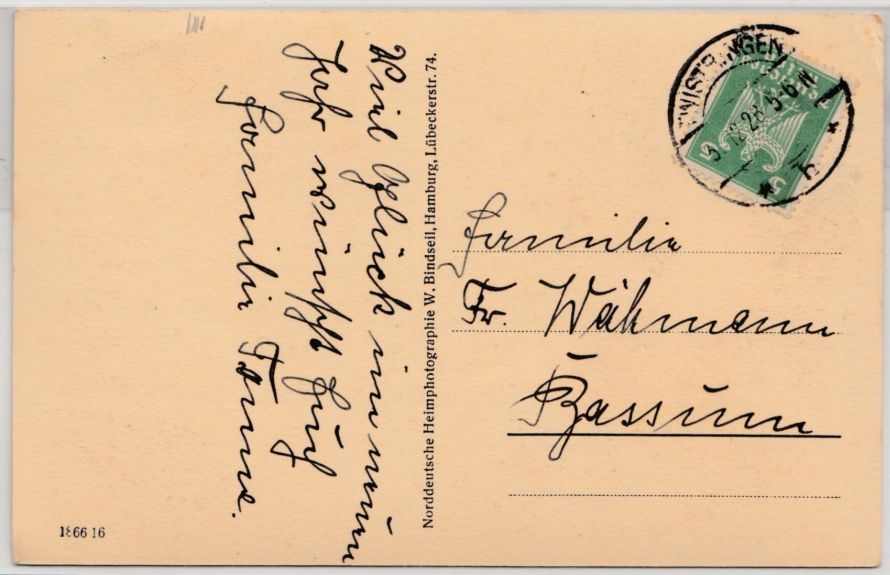 Viel Glück im neuen
Jahr wünscht Euch
Familie Tönne.
Norddeutsche Heimphotographie W. Bindseil, Hamburg, Lübeckerstr. 74.
TWISTRINGEN
5-6 N
5
5
Familie
Fr. Wähmann
Bassum
186616